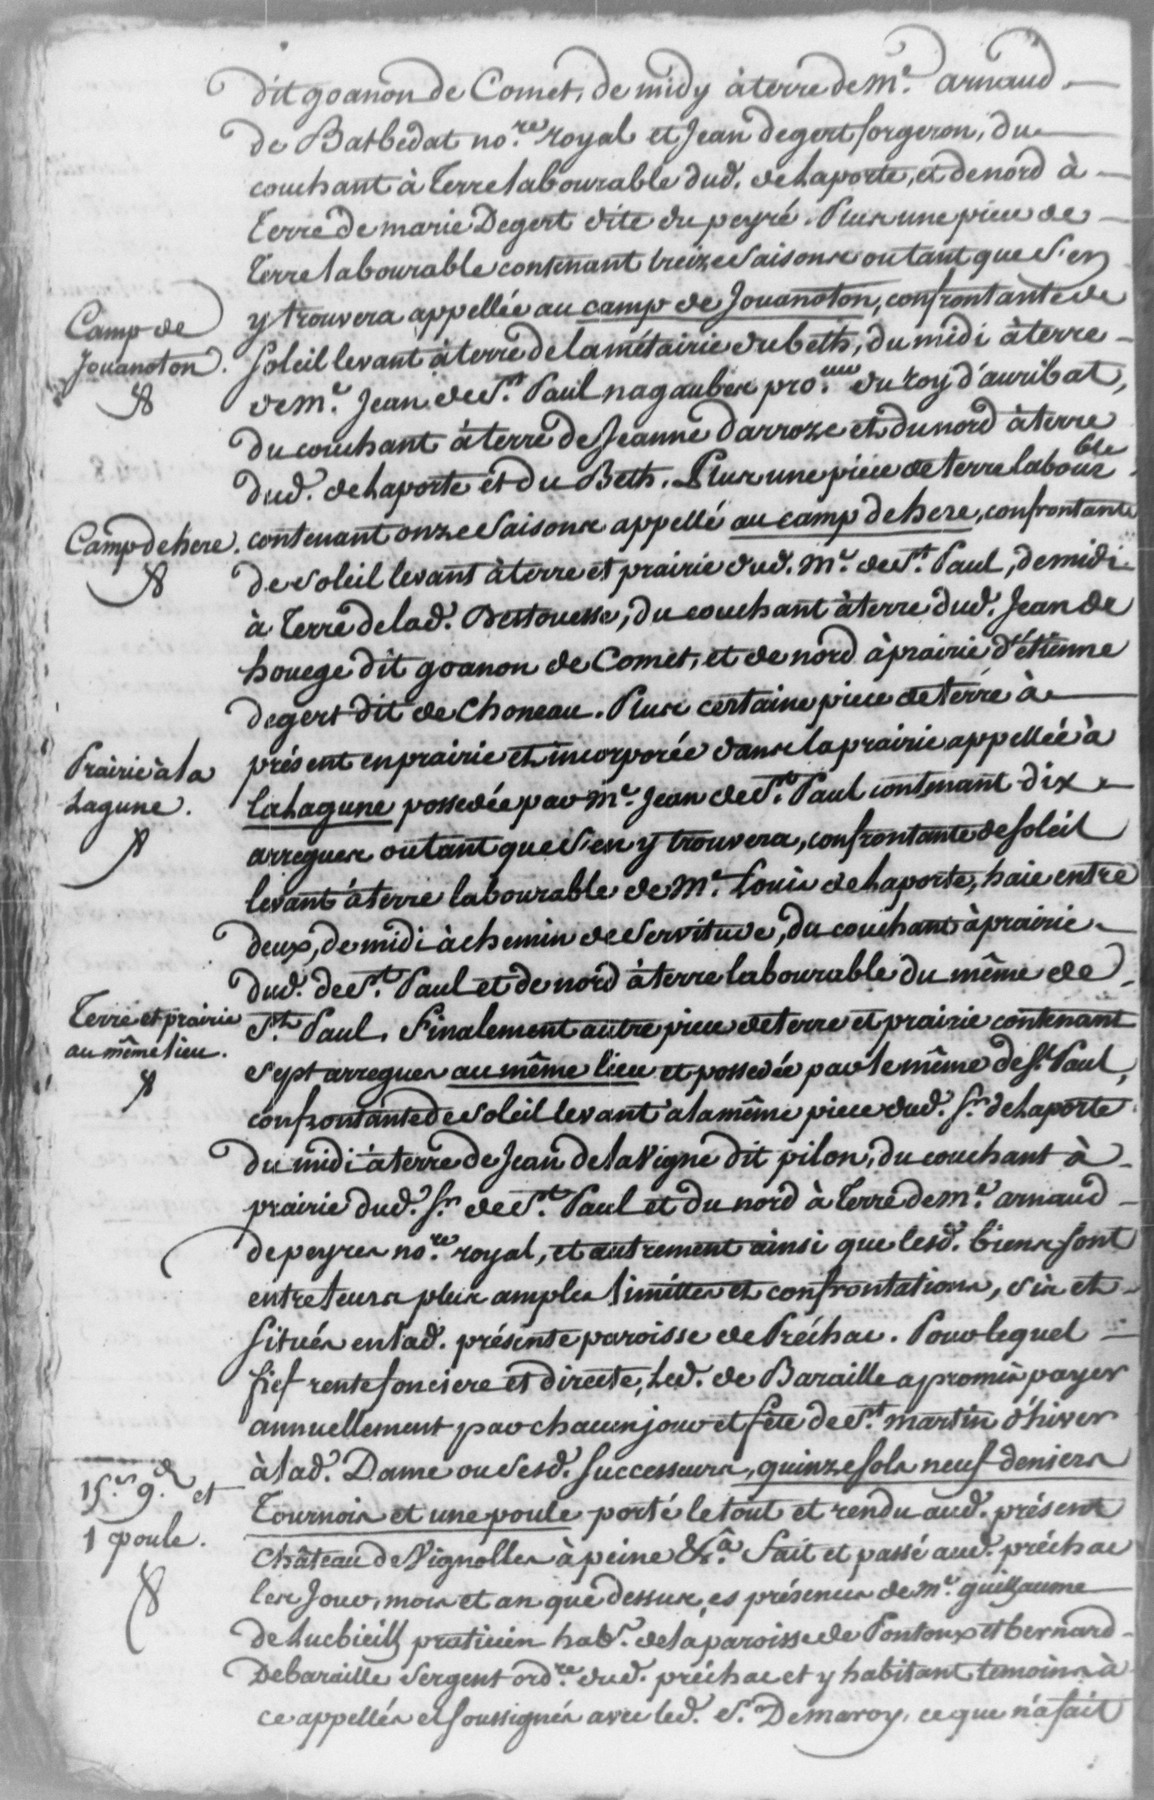 dit goanon de Comet, de midy à terre de M.e arnaud
de Batbedat no.re royal et Jean degert forgeron, du
couchant à terre labourable dud. de Laporte, et de nord à
terre de marie Degert dite du peyré. Plus une piece de
terre labourable contenant treize saisons ou tant que s'en
Camp de Jouanoton.
y trouvera appellée au camp de Jouanoton, confrontante de
soleil levant à terre de la métairie du beth, du midi à terre
de M.e Jean de S.t Paul nagaubes pro.eur du roy d'auribat,
du couchant à terre de Jeanne darroze et du nord à terre
dud. de Laporte et du Beth. Plus une piéce de terre labour.ble
Camp de here.
contenant onze saisons appellé au camp de here, confrontant
de soleil levant à terre et prairie dud. M.e de S.t Paul, de midi
à terre de lad. Destouesse, du couchant à terre dud. Jean de
houege dit goanon de Comet, et de nord à prairie d'étienne
degert dit de Choneau. Plus certaine piece de terre à
Prairie à la Lagune.
présent en prairie et incorporée dans la prairie appellée à
la Lagune possedée par M.e Jean de S.t Paul contenant dix
arregues ou tant que s'en y trouvera, confrontante de soleil
levant à terre labourable de M.e Louis de Laporte, haie entre
deux, de midi à chemin de servitude, du couchant à prairie
dud. de S.t Paul et de nord à terre labourable du même de
Terre et prairie au même lieu.
S.t Paul. Finalement autre piece de terre et prairie contenant
sept arregues au même lieu et possedée par le même de S.t Paul,
confrontante de soleil levant a la même piece dud. S.r de Laporte
du midi à terre de Jean de lavigne dit pilon, du couchant à
prairie dud. S.r de S.t Paul et du nord à terre de M.e arnaud
de peyres no.re royal, et autrement ainsi que lesd. biens sont
entre leurs plus amples limittes et confrontations, sis et
situés en lad. présente paroisse de Préchac. Pour lequel
fief rente fonciere et directe, led. de Baraille a promis payer
annuellement par chacun jour et fête de S.t martin d'hiver
à lad. Dame ou sesd. successeurs, quinze sols neuf deniers
15.s 9.d et 1 poule.
Tournois et une poule porté le tout et rendu aud. présent
château de Vignolles à peine &.a Fait et passé aud. préchac
les Jour, mois et an que dessus, es présences de M.e guillaume
de Lucbieilh praticien hab.t de la paroisse de Pontonx et bernard
Debaraille sergent ord.re dud. préchac et y habitant temoins à
ce appellés et soussignés avec led. S. Demaroy, ce que n'a fait